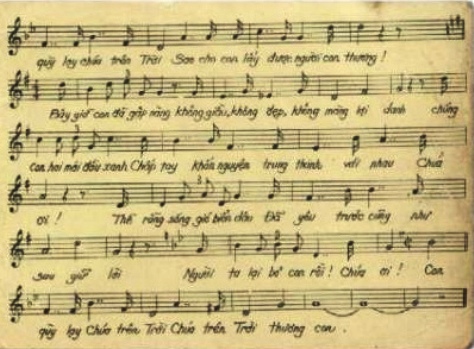 quỳ lạy chúa trên Trời Sao cho con lấy được người con thương!
Bây giờ con đã gặp nàng không giầu, không đẹp, không màng lợi danh chúng
con hai mái đầu xanh Chắp tay khấn nguyện trung thành với nhau Chúa
ơi! Thế rằng sóng gió biển dâu Đã yêu trước cũng như
sau giữ lời Người ta lại bỏ con rồi! Chúa ơi! Con
qùy lạy Chúa trên Trời Chúa trên Trời thương con.
3